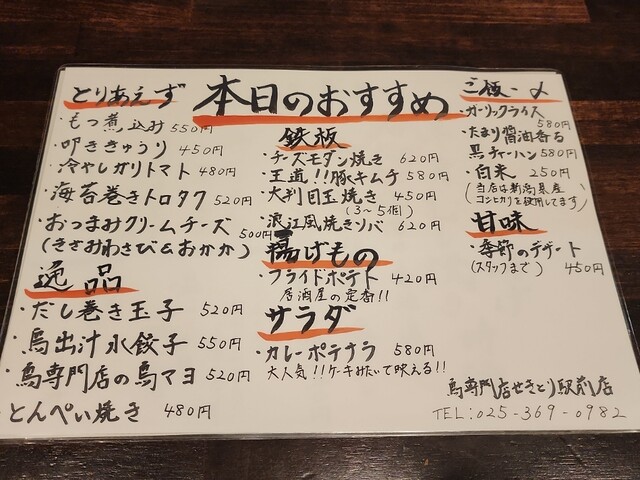 本日のおすすめ
とりあえず
・もつ煮込み 550円
・叩ききゅうり 450円
・冷やしガリトマト 480円
・海苔巻きトロタク 520円
・おつまみクリームチーズ 500円
(きざみわさび&おかか)
逸品
・だし巻き玉子 520円
・鳥出汁水餃子 550円
・鳥専門店の鳥マヨ 520円
とんぺい焼き 480円
鉄板
・チーズモダン焼き 620円
・王道!!豚キムチ 580円
・大判目玉焼き 450円
(3〜5個)
・浪江風焼きソバ 620円
揚げもの
・フライドポテト 420円
居酒屋の定番!!
サラダ
・カレーポテサラ 580円
大人気!!ケーキみたいで映える!!
ご飯・〆
・ガーリックライス
580円
・たまり醤油香る
黒チャーハン 580円
・白米 250円
(当店は新潟県産
コシヒカリを使用してます)
甘味
・季節のデザート
(スタッフまで) 450円
鳥専門店せきとり駅前店
TEL:025-369-0982